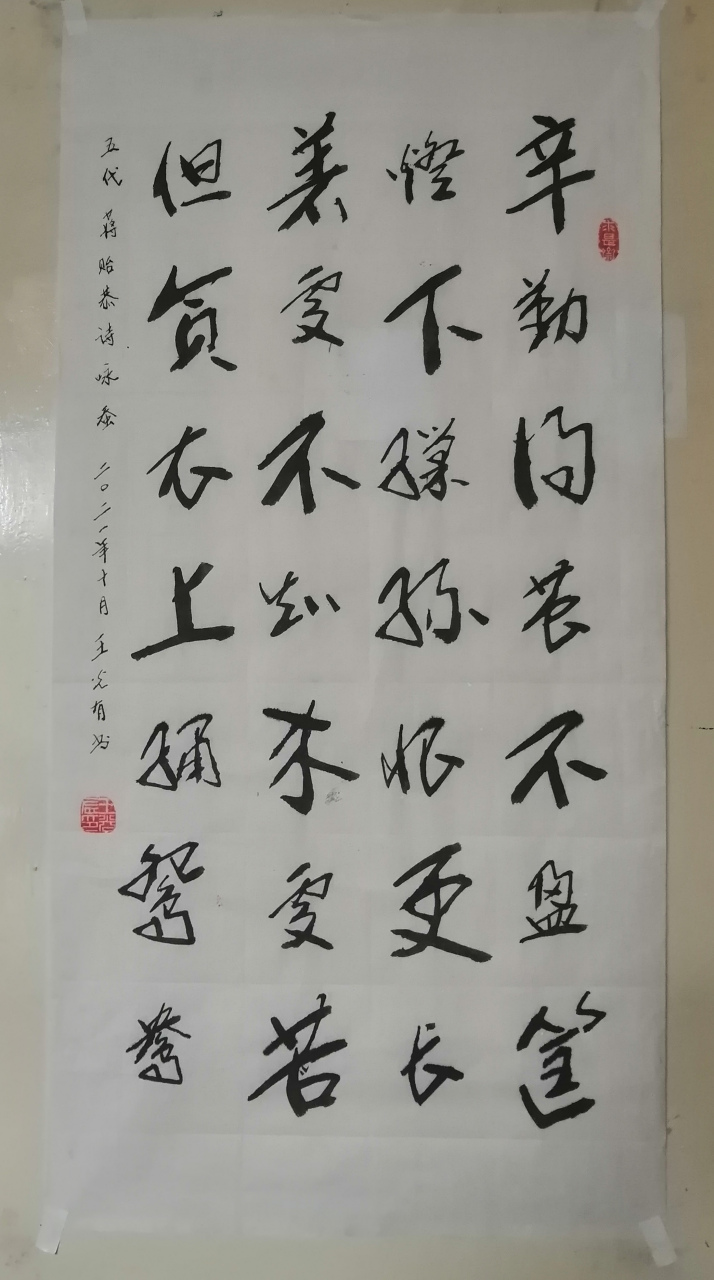 辛勤得茧不盈筐
燈下缫絲恨更长
着處不知来處苦
但貪衣上绣鸳鸯
五代 蒋贻恭诗咏蚕 二〇二一年十月 王光有书